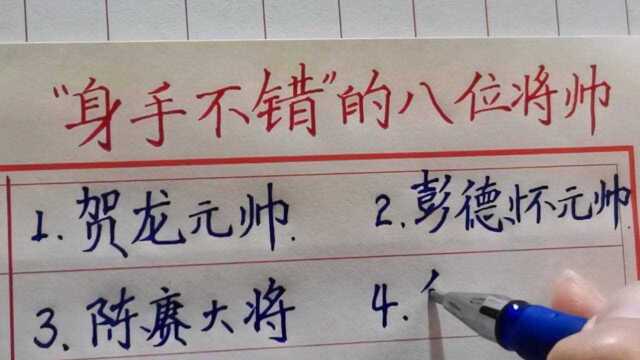 “身手不错”的八位将帅
1.贺龙元帅. 2.彭德怀元帅.
3.陈赓大将 4.